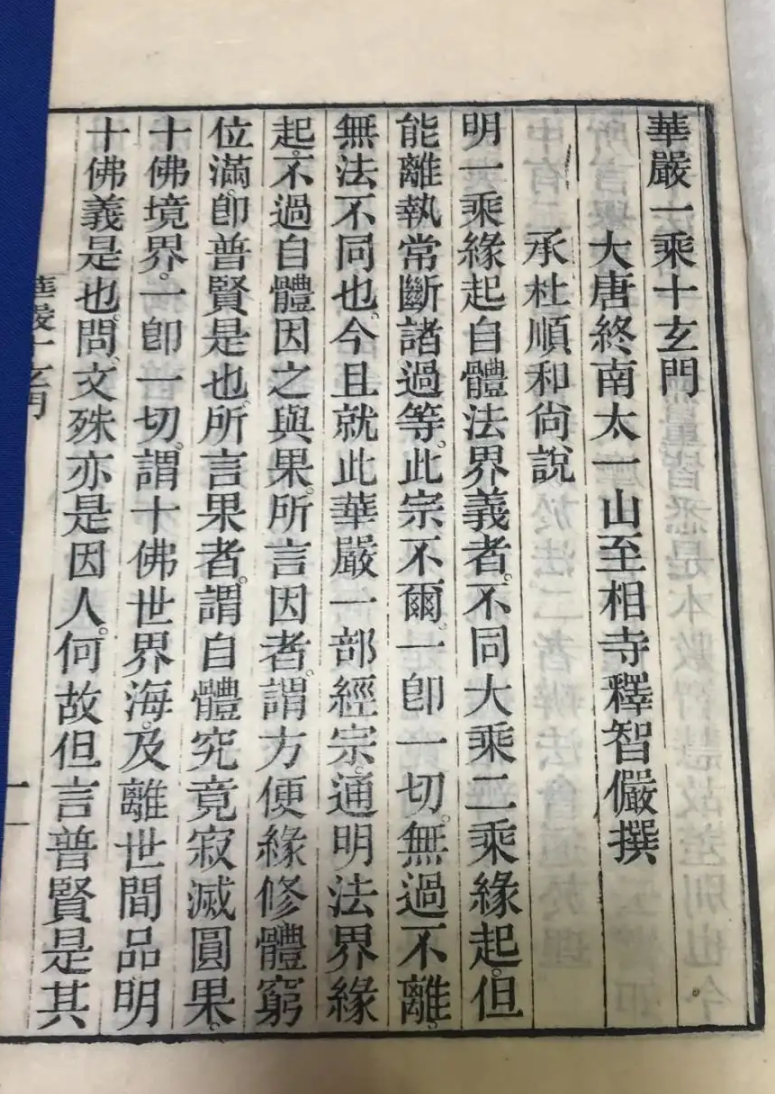 華嚴一乘十玄門
大唐終南太一山至相寺釋智儼撰
承杜順和尚說
明一乘緣起自體法界義者。不同大乘二乘緣起。但
能離執常斷諸過等。此宗不爾。一卽一切。無過不離。
無法不同也。今且就此華嚴一部經宗。通明法界緣
起。不過自體因之與果。所言因者。謂方便緣修體窮
位滿。卽普賢是也。所言果者。謂自體究竟寂滅圓果。
十佛境界。一卽一切。謂十佛世界海。及離世間品。明
十佛義是也。問。文殊亦是因人。何故但言普賢是其
華嚴十玄門
一